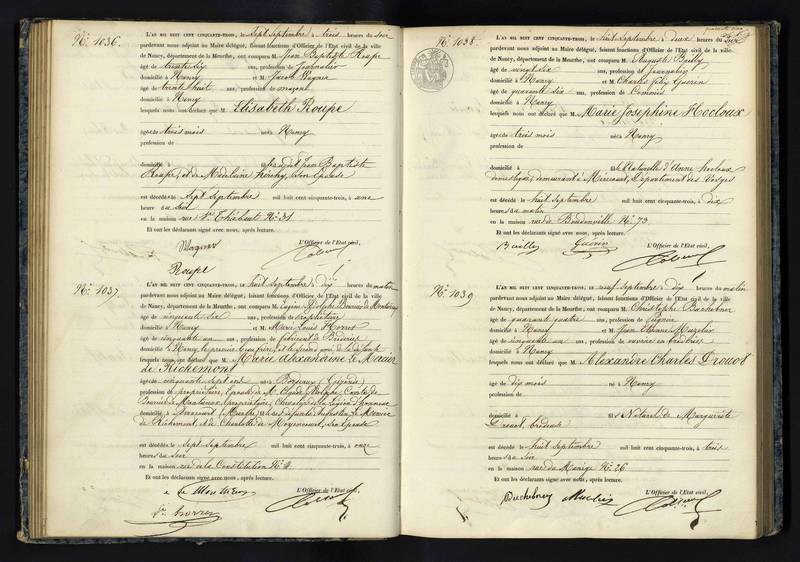 N.° 1036.
L'AN MIL HUIT CENT CINQUANTE-TROIS, le Sept Septembre à trois heures du soir
pardevant nous adjoint au Maire délégué, faisant fonctions d'Officier de l'Etat civil de la ville
de Nancy, département de la Meurthe, ont comparu M. Jean Baptiste Roupe
âgé de trente six ans, profession de Journalier
domicilié à Nancy et M. Jacob Wagner
âgé de trente huit ans, profession de maçon
domicilié à Nancy
lesquels nous ont déclaré que Elisabeth Roupe
âgée de trois mois née à Nancy
profession de
domiciliée à fille de Jean Baptiste
Roupe, & de Madelaine son Epouse
est décédée le Sept Septembre mil huit cent cinquante-trois, à une
heure du soir
en la maison rue St. Thiébaut N.° 31
Et ont les déclarants signé avec nous, après lecture.
L'Officier de l'Etat civil,
Wagner
Roupe
N.° 1037.
L'AN MIL HUIT CENT CINQUANTE-TROIS, le huit Septembre à dix heures du matin
pardevant nous adjoint au Maire délégué, faisant fonctions d'Officier de l'Etat civil de la ville
de Nancy, département de la Meurthe, ont comparu M. Eugène Adolphe
âgé de cinquante six ans, profession de propriétaire
domicilié à Nancy et M. Marie Louis Horrer
âgé de cinquante un ans, profession de fabricant de Broderie
domicilié à Nancy, le premier beau frère, & le second ami de la défunte
lesquels nous ont déclaré que Marie Alexandrine le Mercier
de Richemont
âgée de cinquante sept ans née à Bordeaux (Gironde)
profession de propriétaire, Epouse de M. Claude Adolphe, Comte de
propriétaire, Chevalier de la Légion d'honneur
domiciliée à (Meurthe) fille de défunts Augustin le Mercier
de Richemont, & de Charlotte de son Epouse
est décédée le Sept Septembre mil huit cent cinquante-trois, à onze
heures du soir
en la maison rue de la Constitution N.° 4
Et ont les déclarants signé avec nous, après lecture.
L'Officier de l'Etat civil,
Horrer
N.° 1038.
L'AN MIL HUIT CENT CINQUANTE-TROIS, le huit Septembre à deux heures du soir
pardevant nous adjoint au Maire délégué, faisant fonctions d'Officier de l'Etat civil de la ville
de Nancy, département de la Meurthe, ont comparu M. Auguste Bailly
âgé de vingt six ans, profession de Journalier
domicilié à Nancy et M. Charles Félix Guérin
âgé de quarante six ans, profession de Commis
domicilié à Nancy
lesquels nous ont déclaré que Marie Josephine Hocloux
âgée de trois mois née à Nancy
profession de
domiciliée à fille Naturelle d'Anne Hocloux
domestique, demeurant à Mirecourt, Département des Vosges
est décédée le huit Septembre mil huit cent cinquante-trois, à dix
heures du matin
en la maison rue de Boudonville N.° 73
Et ont les déclarants signé avec nous, après lecture.
Bailly Guérin L'Officier de l'Etat civil,
N.° 1039
L'AN MIL HUIT CENT CINQUANTE-TROIS, le neuf Septembre à dix heures du matin
pardevant nous adjoint au Maire délégué, faisant fonctions d'Officier de l'Etat civil de la ville
de Nancy, département de la Meurthe, ont comparu M. Christophe
âgé de quarante quatre ans, profession de
domicilié à Nancy et M. Jean Etienne
âgé de cinquante un ans, profession de ouvrier en broderies
domicilié à Nancy
lesquels nous ont déclaré que Alexandre Charles Drouot
âgé de dix mois né à Nancy
profession de
domicilié à fils Naturel de Marguerite
Drouot, brodeuse
est décédé le huit Septembre mil huit cent cinquante-trois, à trois
heures du soir
en la maison rue du Manège N.° 26
Et ont les déclarants signé avec nous, après lecture.
L'Officier de l'Etat civil,